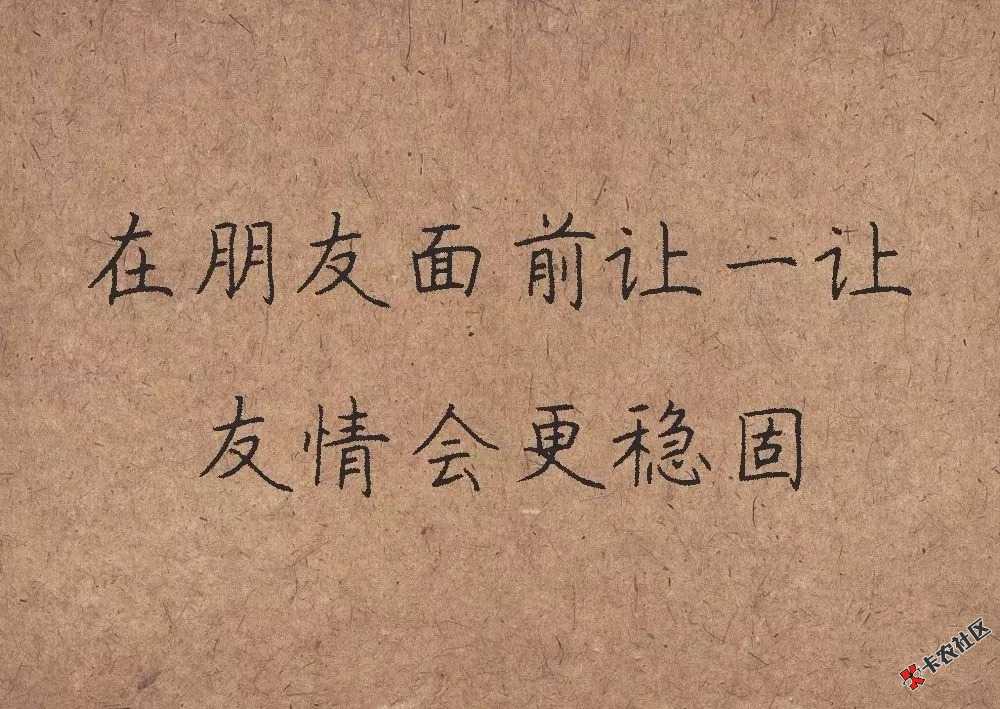 在朋友面前让一让
友情会更稳固
卡农社区